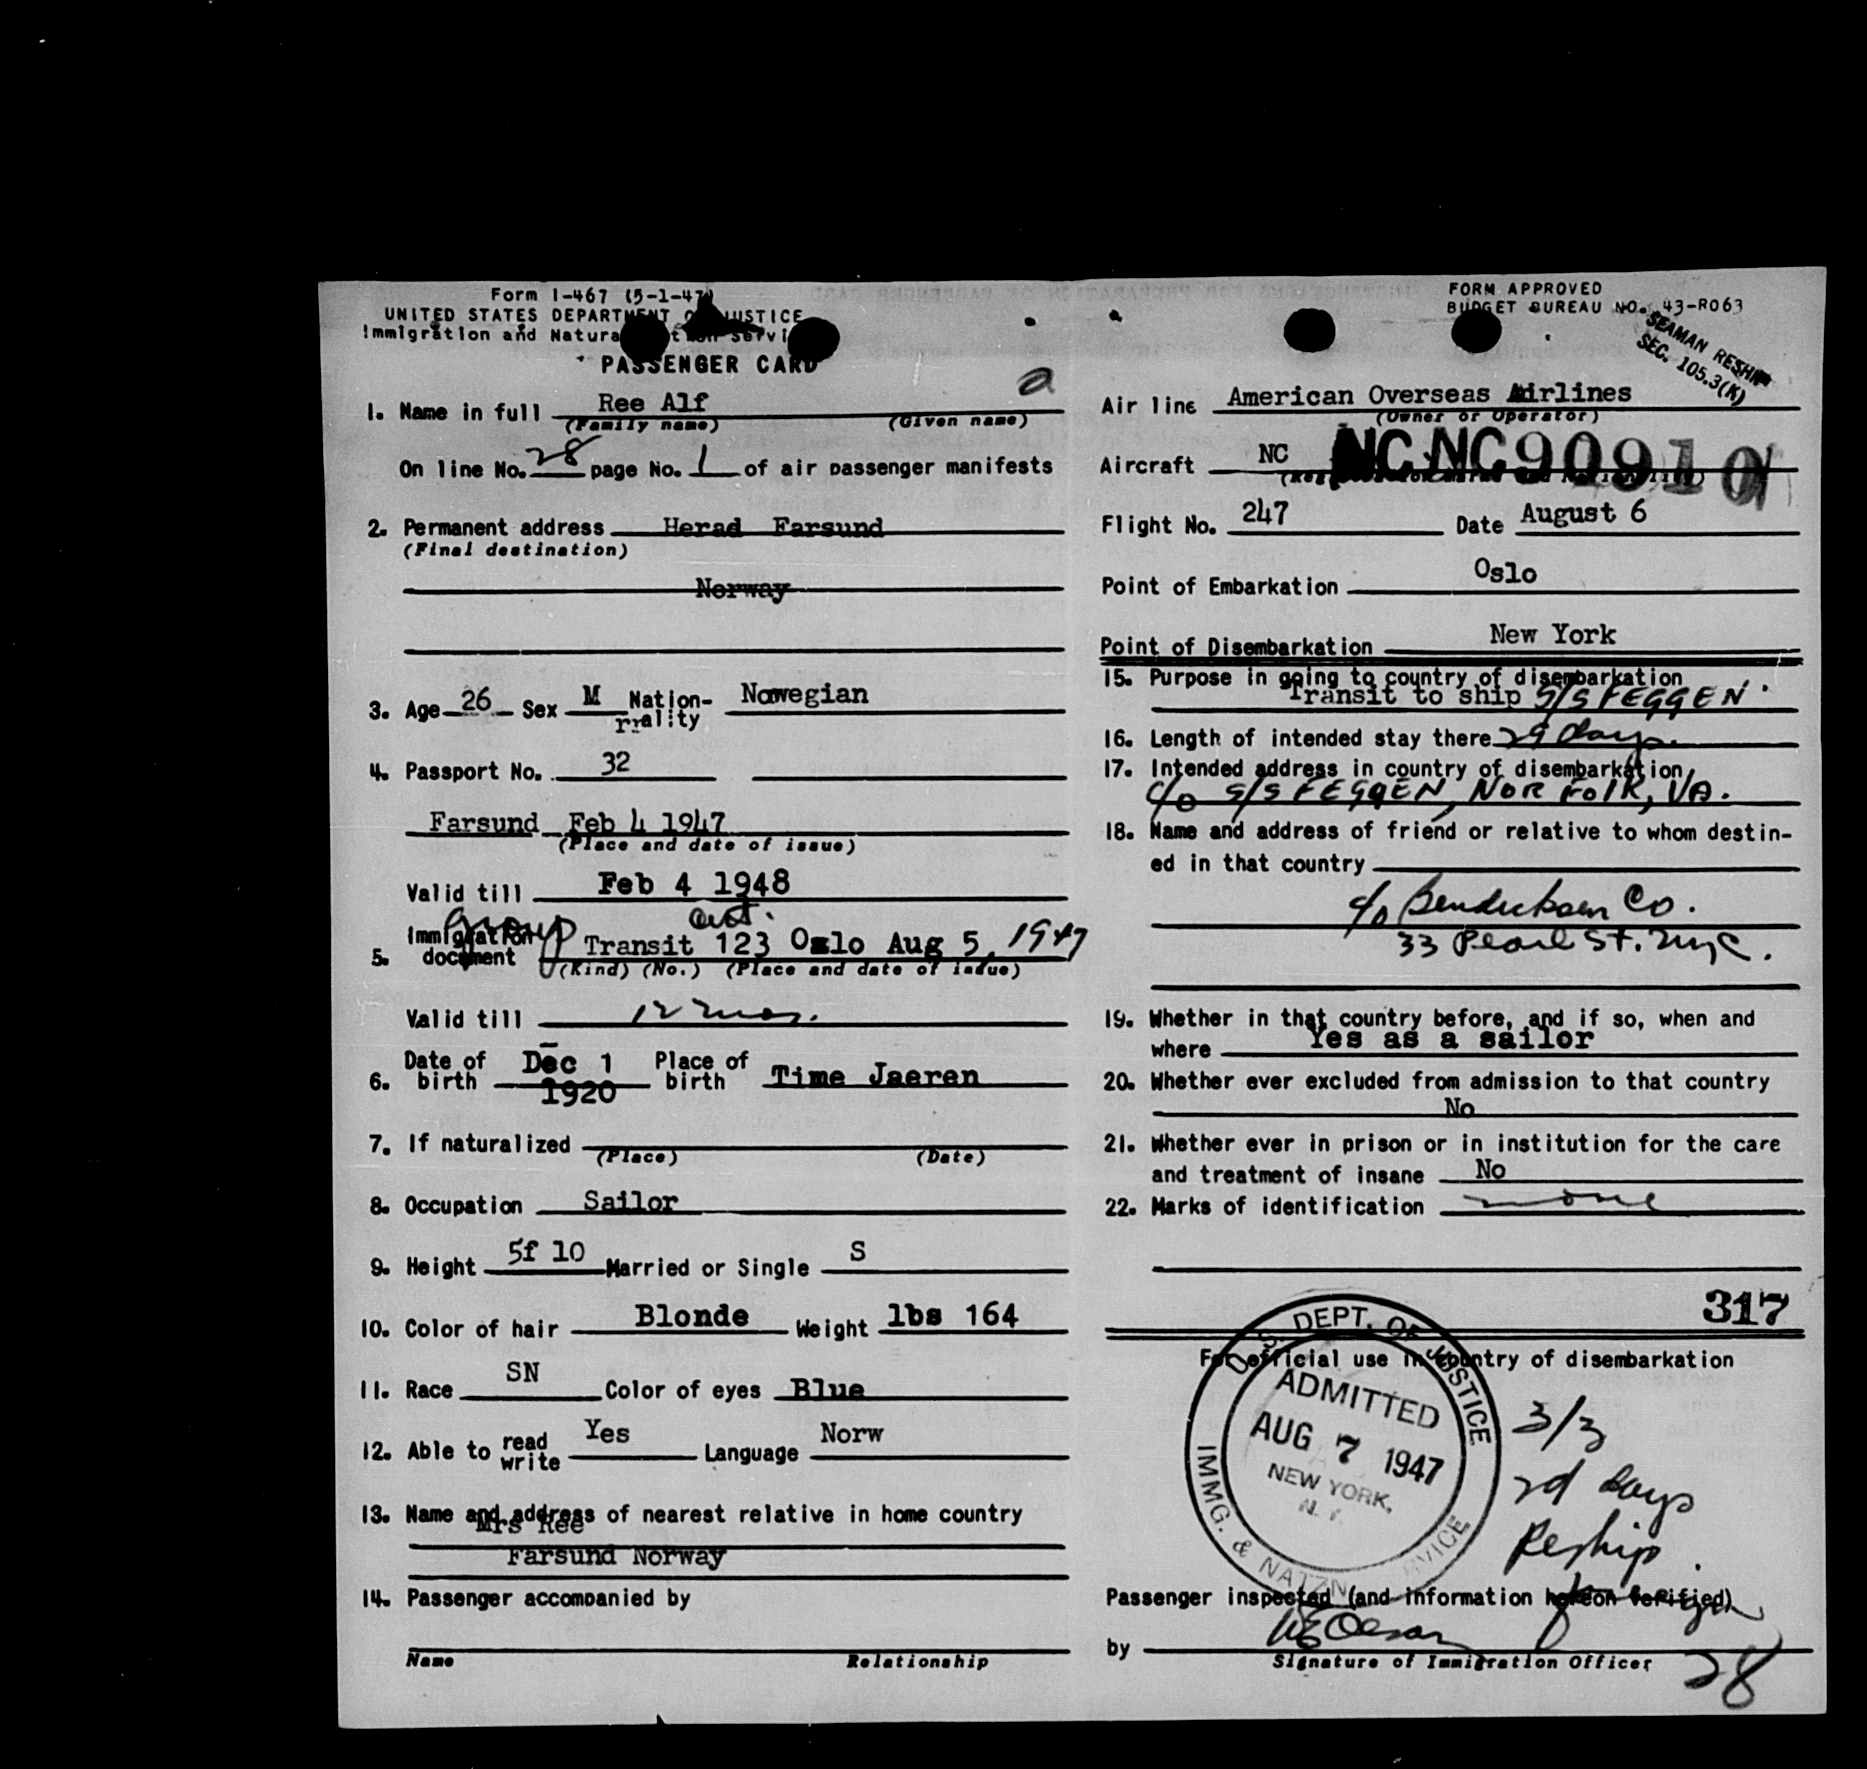 Form I-467 (5-1-47)
UNITED STATES DEPARTMENT OF JUSTICE
Immigration and Naturalization Service
PASSENGER CARD
a
1. Name in full Ree Alf
(Family name) (Given name)
On line No. 28 page No. 1 of air passenger manifests
2. Permanent address Herad Farsund
(Final destination)
Norway
3. Age 26 Sex M Nation-rality Nowegian
4. Passport No. 32
Farsund Feb 4 1947
(Place and date of issue)
Valid till Feb 4 1948
group
5. Immigration document Transit 123 Oslo Aug 5, 1947
(Kind) (No.) (Place and date of issue)
Valid till 12 mos.
6. Date of birth Dec 1 1920 Place of birth Time Jaeren
7. If naturalized
(Place) (Date)
8. Occupation Sailor
9. Height 5f 10 Married or Single S
10. Color of hair Blonde Weight lbs 164
11. Race SN Color of eyes Blue
12. Able to read write Yes Language Norw
13. Name and address of nearest relative in home country
Mrs Ree
Farsund Norway
14. Passenger accompanied by
Name Relationship
FORM APPROVED
BUDGET BUREAU NO. 43-R063
SEAMAN RESHIP
SEC. 105.3(K)
Air line American Overseas Airlines
(Owner or Operator)
Aircraft NC NC NC90910
Flight No. 247 Date August 6
Point of Embarkation Oslo
Point of Disembarkation New York
15. Purpose in going to country of disembarkation
Transit to ship S/S FEGGEN.
16. Length of intended stay there 29 days.
17. Intended address in country of disembarkation
c/o S/S FEGGEN, NORFOLK, VA.
18. Name and address of friend or relative to whom destin-
ed in that country
c/o Bendicksen Co.
33 Pearl St. NYC.
19. Whether in that country before, and if so, when and
where Yes as a sailor
20. Whether ever excluded from admission to that country
No
21. Whether ever in prison or in institution for the care
and treatment of insane No
22. Marks of identification none
317
For official use in country of disembarkation
U.S. DEPT. OF JUSTICE
ADMITTED
AUG 7 1947
NEW YORK,
N. Y.
IMMG. & NATZN SERVICE
3/3
29 days
Reship
Passenger inspected (and information hereon verified)
by
Signature of Immigration Officer
28